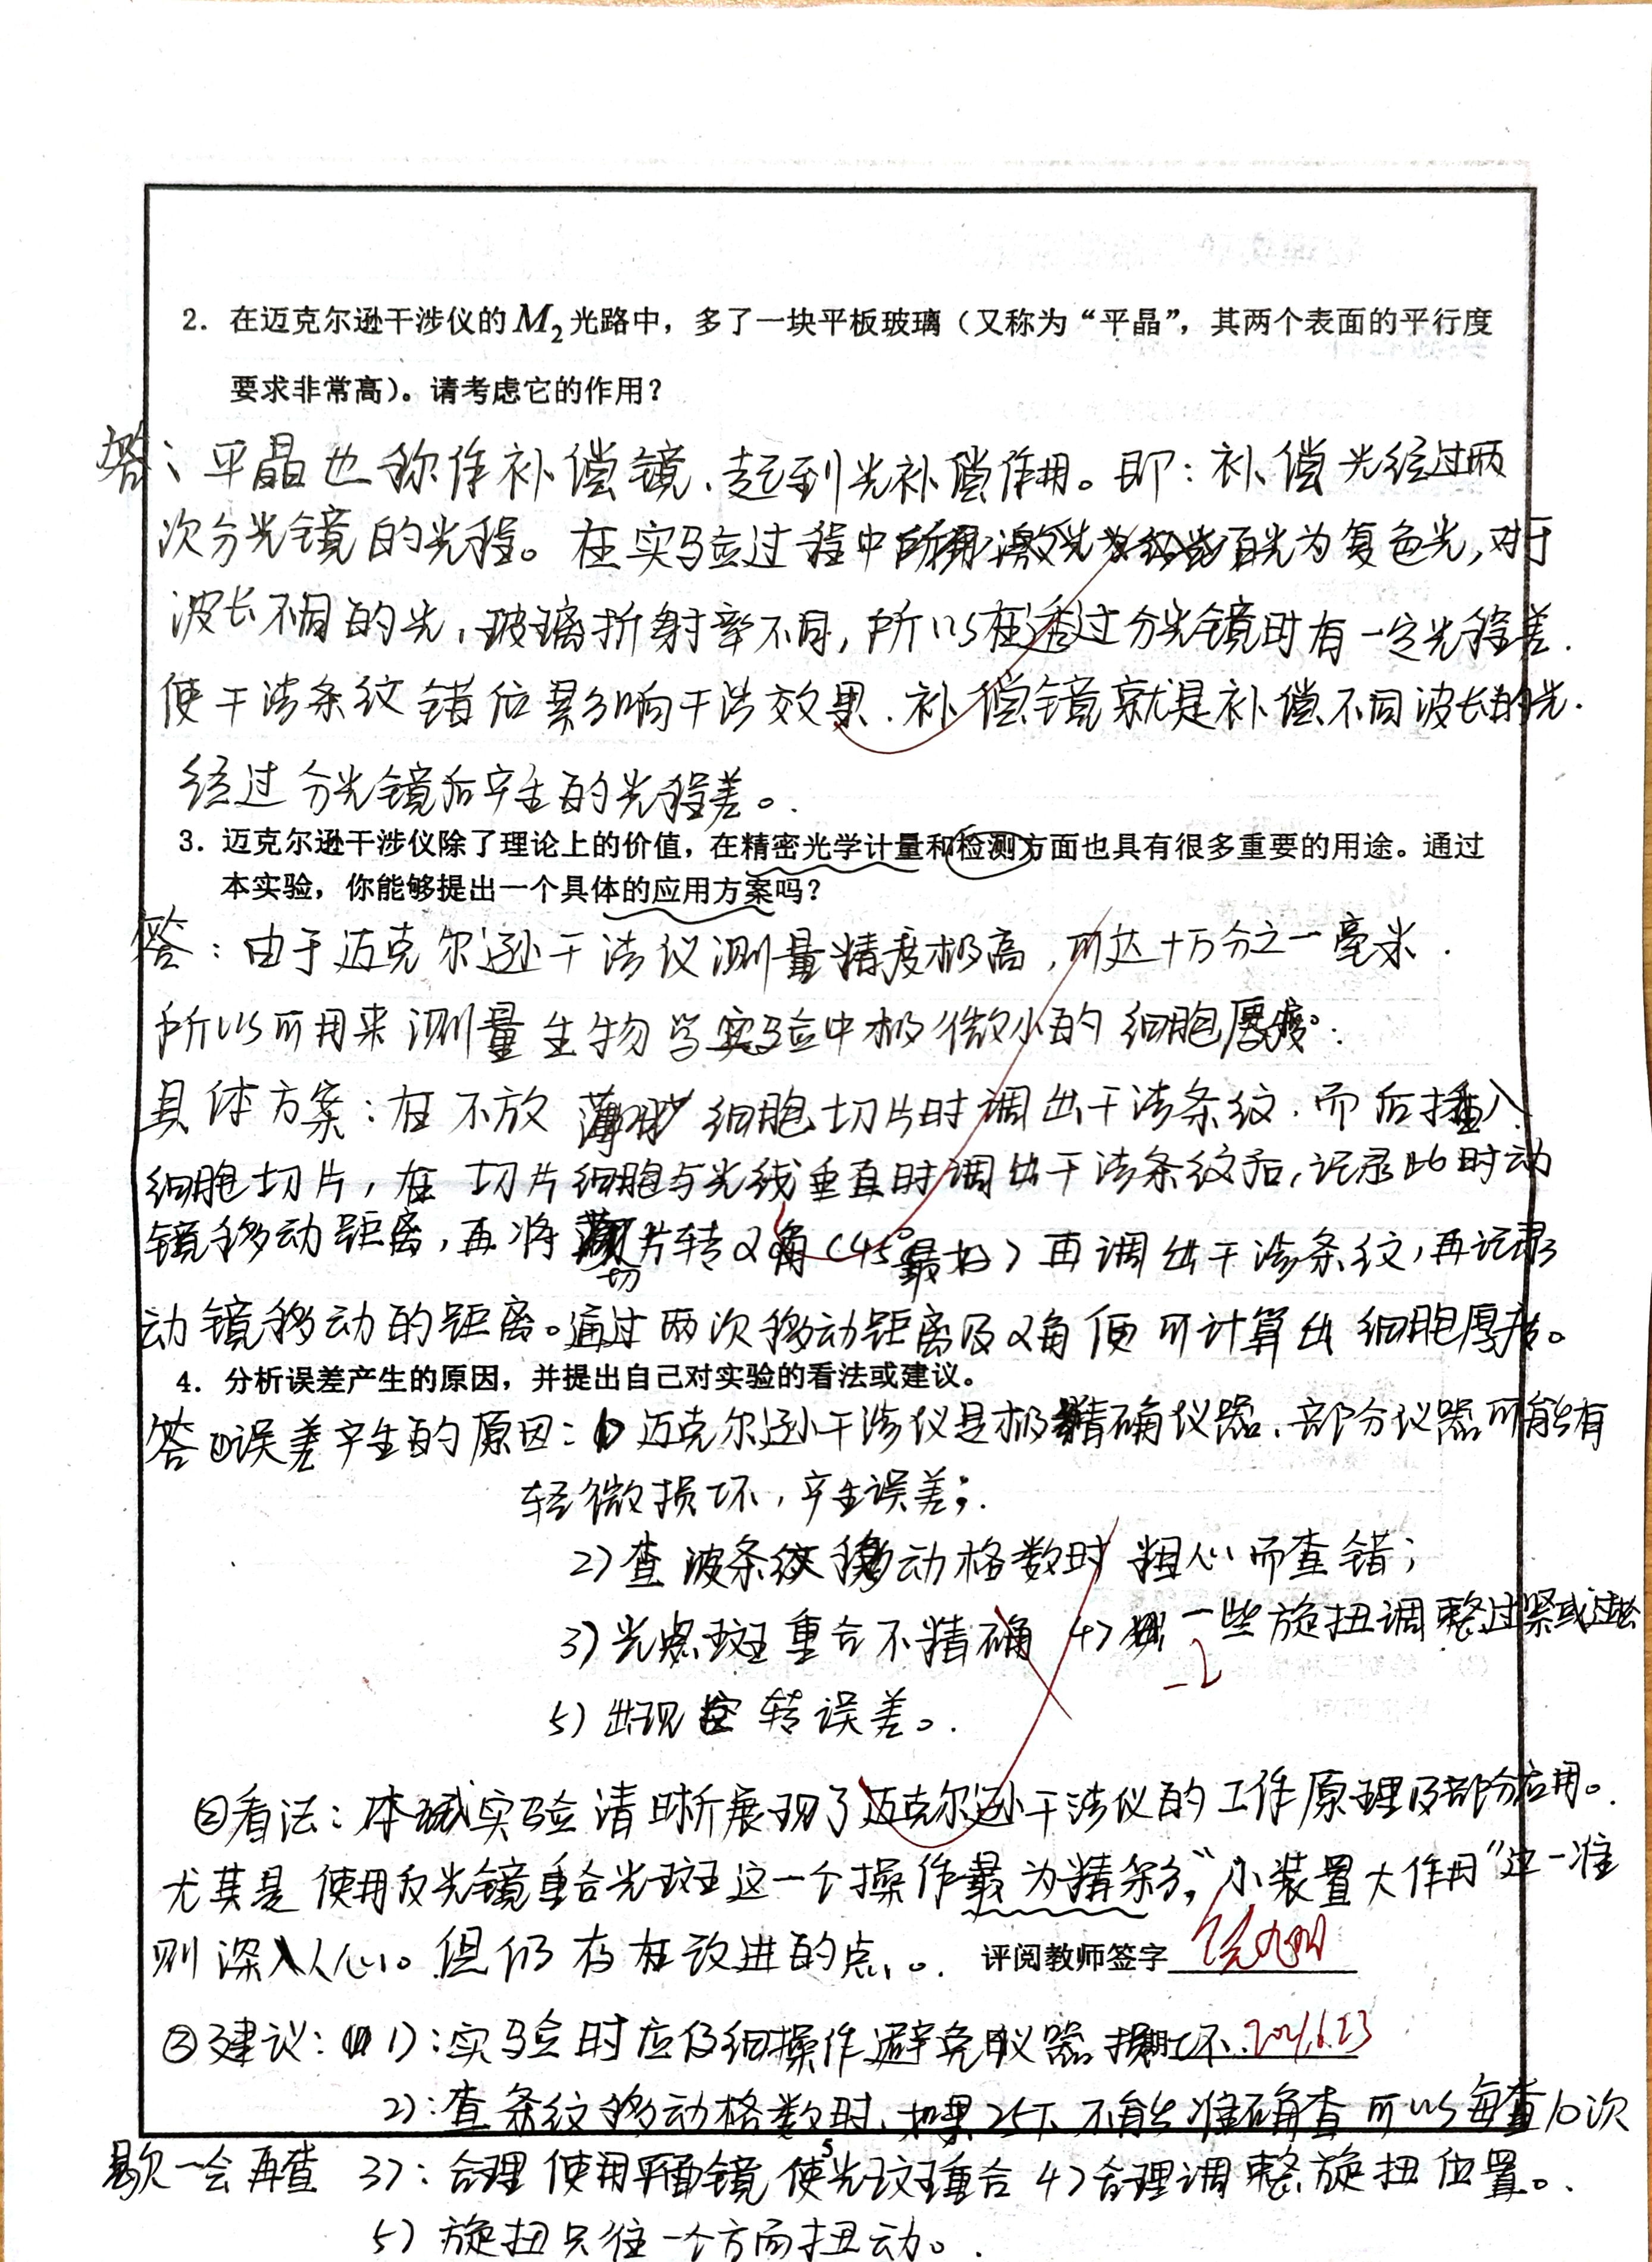 2. 在迈克尔逊干涉仪的M₂光路中，多了一块平板玻璃（又称为“平晶”，其两个表面的平行度
要求非常高）。请考虑它的作用？
答：平晶也称作补偿镜、起到光补偿作用。即：补偿光经过两
次分光镜的光程。在实验过程中所用白光为复色光，对于
波长不同的光，玻璃折射率不同，所以在透过分光镜时有一定光程差.
使干涉条纹错位影响干涉效果.补偿镜就是补偿不同波长的光.
经过分光镜后产生的光程差。
3. 迈克尔逊干涉仪除了理论上的价值，在精密光学计量和检测方面也具有很多重要的用途。通过
本实验，你能够提出一个具体的应用方案吗？
答：由于迈克尔逊干涉仪测量精度极高，可达十万分之一毫米.
所以可用来测量生物学实验中极微小的细胞厚度。
具体方案：在不放细胞切片时调出干涉条纹.而后插入
细胞切片，在切片细胞与光线垂直时调出干涉条纹后，记录此时动
镜移动距离，再将切片转α角（45°最好）再调出干涉条纹，再记录
动镜移动的距离。通过两次移动距离及α角便可计算出细胞厚度。
4. 分析误差产生的原因，并提出自己对实验的看法或建议。
答①误差产生的原因：1）迈克尔逊干涉仪是极精确仪器、部分仪器可能有
轻微损坏，产生误差；
2）查波条纹移动格数时粗心而查错；
3）光斑重合不精确 4）一些旋扭调整过紧或过松
-2
5）出现空转误差。
②看法：本实验清晰展现了迈克尔逊干涉仪的工作原理及部分应用。
尤其是使用反光镜重合光斑这一个操作最为精彩，“小装置大作用”这一准
则深入人心。但仍存在改进的点。 评阅教师签字
③建议：1）：实验时应仔细操作避免仪器损坏. 2021.6.23
2）：查条纹移动格数时、如果25下不能准确查可以每查10次
5
歇一会再查 3）：合理使用平面镜使光斑重合 4）合理调整旋扭位置。
5）旋扭只往一个方向扭动。